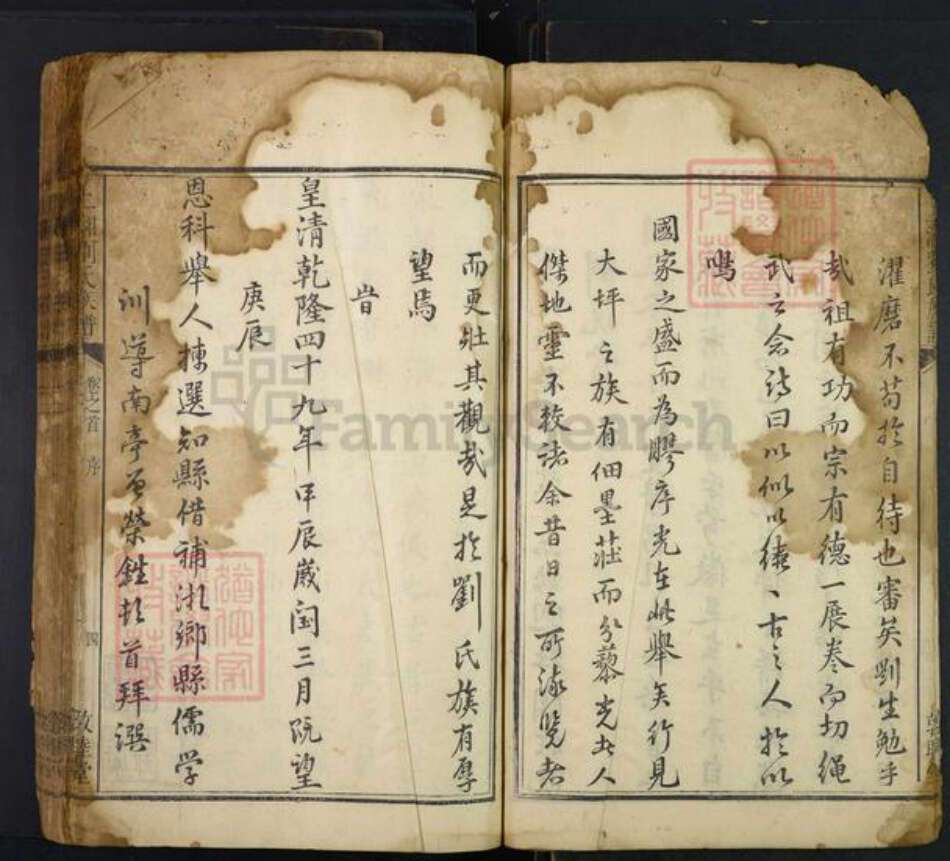 濯磨不苟於自待也審矣矧生勉乎
哉祖有功而宗有德一展卷而切繩
武之念詩曰以似以續續古之人於以
鳴
國家之盛而為膠序光在此舉矣行見
大坪之族有佃墨莊而分藜光者人
傑地靈不較諸余昔日之所流覽者
而更壯其觀哉是於劉氏族有厚
望焉
皇清乾隆四十九年甲辰歲閏三月既望
庚辰
恩科舉人揀選知縣借補湘鄉縣儒學
訓導南亭 榮 頓首拜撰
氏族譜
卷之首 序
四
敦睦堂
FamilySearch